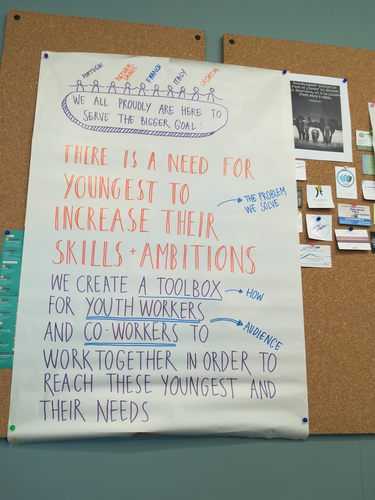 PORTUGAL
NETHERLANDS
FRANCE
ITALY
CROATIA
WE ALL PROUDLY ARE HERE TO
SERVE THE BIGGER GOAL:
THERE IS A NEED FOR
YOUNGEST TO
INCREASE THEIR
SKILLS + AMBITIONS
→ THE PROBLEM
WE SOLVE
WE CREATE A TOOLBOX → HOW
FOR YOUTH WORKERS
AND CO-WORKERS TO → AUDIENCE
WORK TOGETHER IN ORDER TO
REACH THESE YOUNGEST AND
THEIR NEEDS